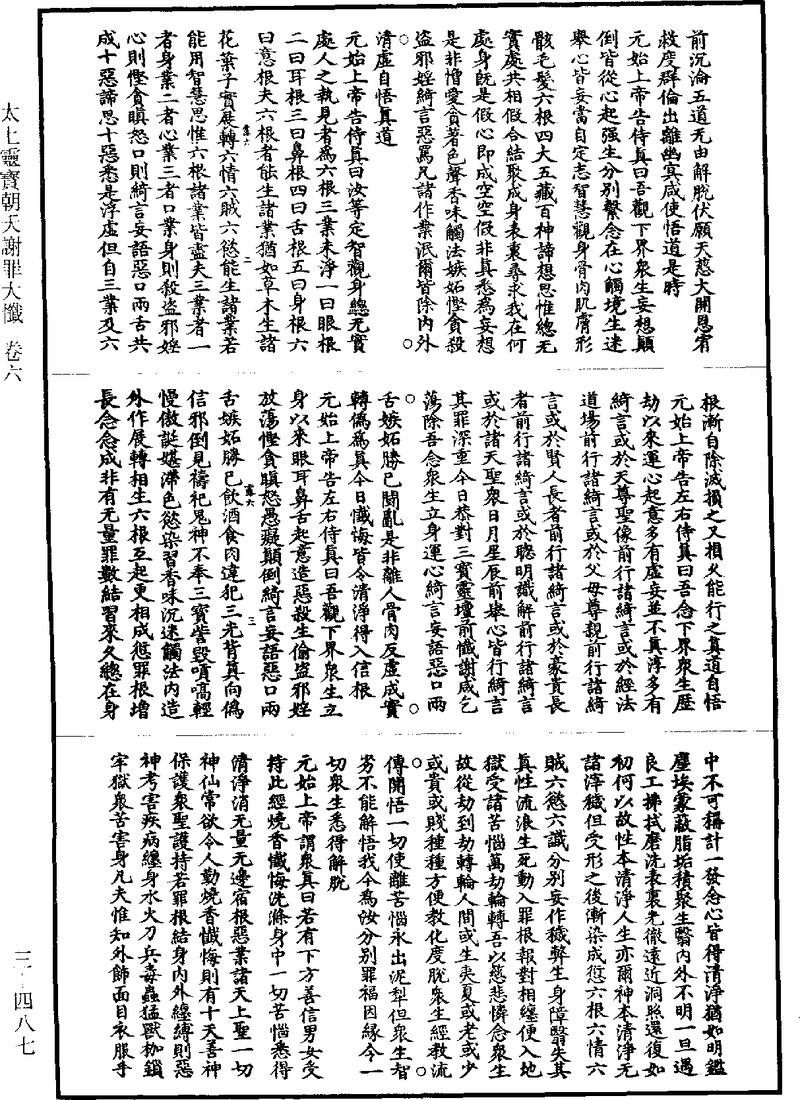 太上靈寶朝天謝罪大懺　卷六
三—四八七
前沉淪五道无由解脫伏願天慈大開恩宥
救度群倫出離幽冥咸使悟道是時
元始上帝告侍真曰吾觀下界衆生妄想顛
倒皆從心起强生分别繫念在心觸境生迷
舉心皆妄當自定志智慧觀身骨肉肌膚形
骸毛髮六根四大五藏百神諦想思惟總无
實處共相假合結聚成身表裏尋求我在何
處身既是假心即成空空假非真悉為妄想
是非憎愛貪著色聲香味觸法嫉妬慳貪殺
盜邪婬綺言惡罵凡諸作業泯爾皆除内外
清虛自悟真道
元始上帝告侍真曰汝等定智觀身總无實
處人之執見者為六根三業未淨一曰眼根
二曰耳根三曰鼻根四曰舌根五曰身根六
曰意根夫六根者能生諸業猶如草木生諸
花葉子實展轉六情六賊六慾能生諸業若
能用智慧思惟六根諸業皆盡夫三業者一
者身業二者心業三者口業身則殺盜邪婬
心則慳貪瞋怒口則綺言妄語惡口兩舌共
成十惡諦思十惡悉是浮虛但自三業及六
根漸自除滅損之又損久能行之真道自悟
元始上帝告左右侍真曰吾念下界衆生歷
劫以來運心起意多有虛妄並不真淳多有
綺言或於天尊聖像前行諸綺言或於經法
道場前行諸綺言或於父母尊親前行諸綺
言或於賢人長者前行諸綺言或於豪貴長
者前行諸綺言或於聰明識解前行諸綺言
或於諸天聖衆日月星辰前舉心皆行綺言
其罪深重今日恭對三寶靈壇前懺謝咸乞
蕩除吾念衆生立身運心綺言妄語惡口兩
舌嫉妬勝已鬪亂是非離人骨肉反虛成實
轉僞為真今日懺悔皆令清淨得入信根
元始上帝告左右侍真曰吾觀下界衆生立
身以來眼耳鼻舌起意造惡殺生偷盜邪婬
放蕩慳貪瞋怒愚癡顛倒綺言妄語惡口兩
舌嫉妬勝已飲酒食肉違犯三光背真向僞
信邪倒見禱祀鬼神不奉三寶訾毀嘖高輕
慢傲誕媅滯色慾染習香味沉迷觸法内造
外作展轉相生六根互起更相成愆罪根增
長念念成非有无量罪數結習來久總在身
中不可稱計一發念心皆得清淨猶如明鑑
塵埃蒙蔽脂垢積聚生翳内外不明一旦遇
良工拂拭磨洗表裏光徹遠近洞照還復如
初何以故性本清淨人生亦爾神本清淨无
諸滓穢但受形之後漸染成愆六根六情六
賊六慾六識分别妄作穢弊生身障翳失其
真性流浪生死動入罪根報對相纏便入地
獄受諸苦惱萬劫輪轉吾以慈悲憐念衆生
故從劫到劫轉輪人間或生夷夏或老或少
或貴或賤種種方便教化度脫衆生經教流
傳開悟一切使離苦惱永出泥犁但衆生智
劣不能解悟我今為汝分别罪福因緣令一
切衆生悉得解脫
元始上帝謂衆真曰若有下方善信男女受
持此經燒香懺悔洗滌身中一切苦惱悉得
清淨消无量无邊宿根惡業諸天上聖一切
神仙常欲令人勤燒香懺悔則有十天善神
保護衆聖護持若罪根結身内外纏縛則惡
神考害疾病纏身水火刀兵毒蟲猛獸枷鎖
牢獄衆苦害身凡夫惟知外飾面目衣服手